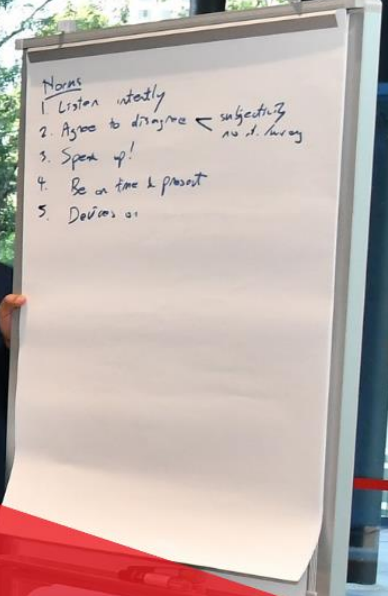 Norms
1. Listen intently
2. Agree to disagree < subjectivity
no rt./wrong
3. Speak up!
4. Be on time & present
5. Devices